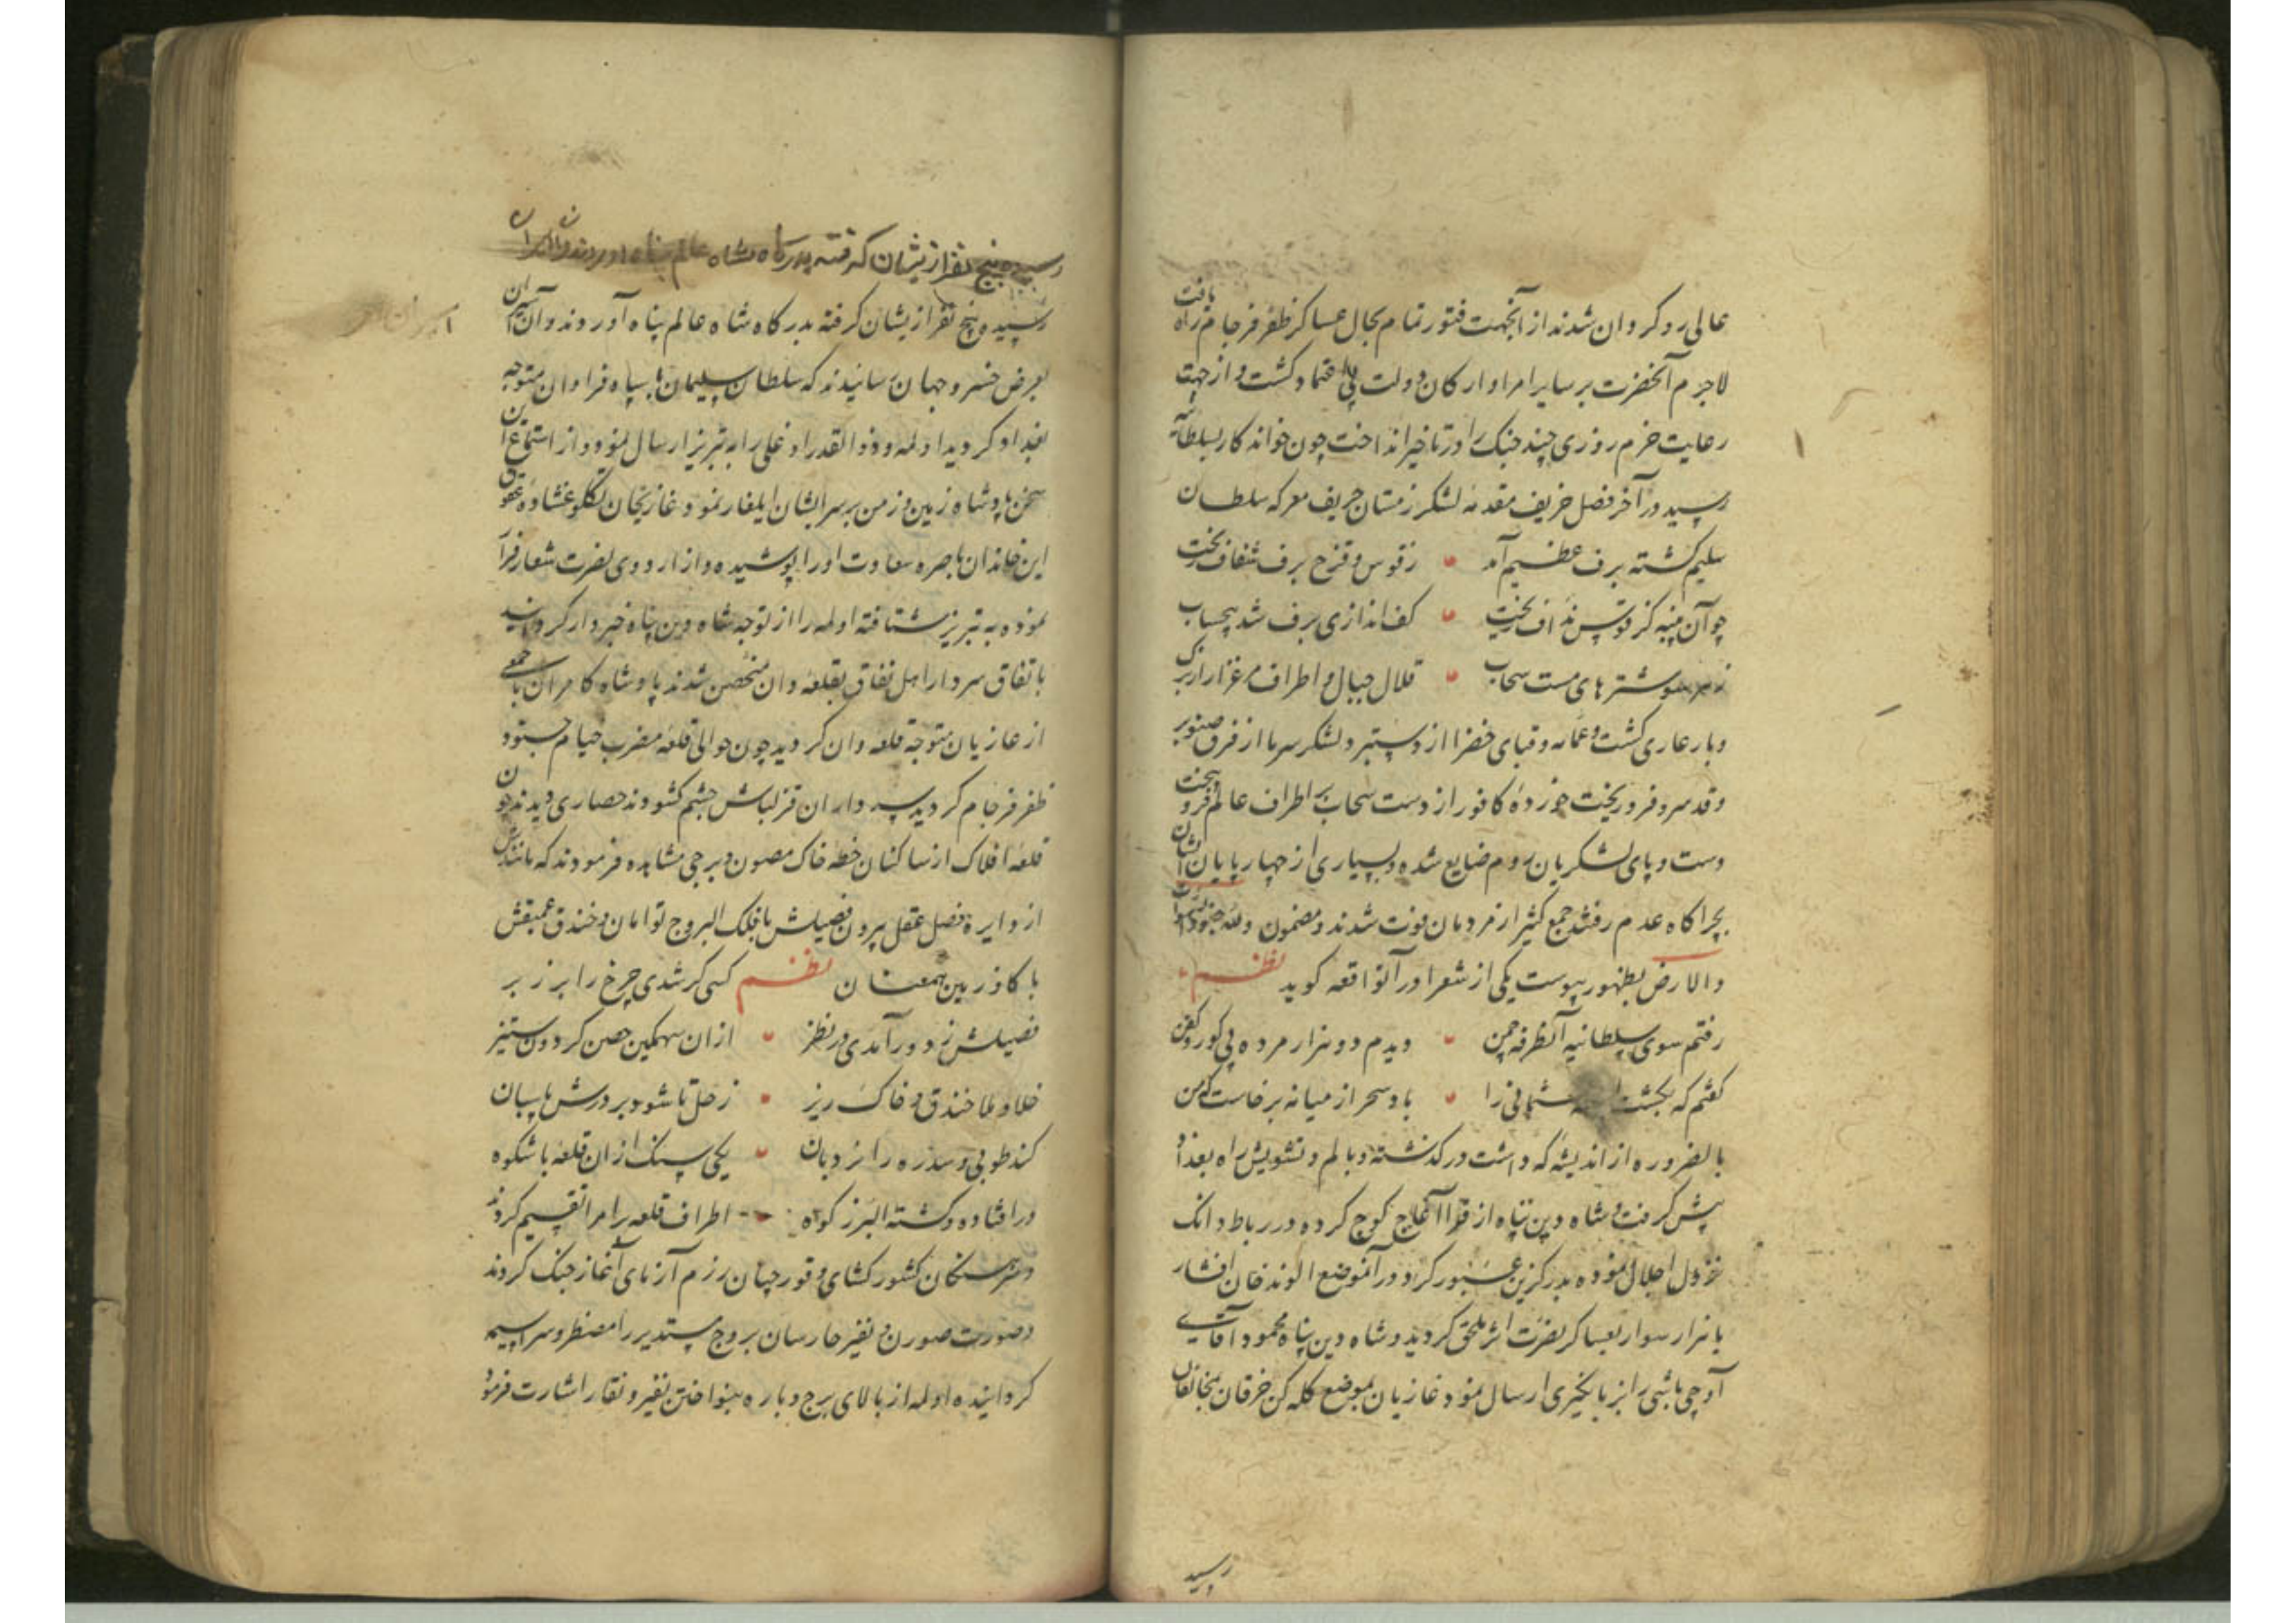 عالی رو کردان شدند از آنجهت فتور تمام بحال عساکر ظفر فرجام راه یافت
لاجرم آنحضرت بر سایر امرا و ارکان دولت بی اعتماد کشت و از جهت
رعایت حزم روزی چند جنک را در تاخیر انداخت چون خواندکار بسلطانیه
رسید در آخر فصل خریف مقدمه لشکر زمستان حریف معرکه سلطان
سلیم کشته برف عظیم آمد زقوس و قزح برف شفاف ریخت
چو آن پنبه کز قوس نداف ریخت کف اندازی برف شد بیحساب
شترهای مست سحاب قلال جبال و اطراف مرغزار از برک
و بار عاری کشت و عمامه و قبای خضرا از دستبرد لشکر سرما از فرق صنوبر
و قد سرو فرو ریخت خورده کافور از دست سحاب بر اطراف عالم فرو بیخت
دست و پای لشکریان روم ضایع شده و بسیاری از چهارپایان ایشان
بچراکاه عدم رفتند جمع کثیر از مردمان فوت شدند و مضمون ولله جنود السموات
والارض بظهور پیوست یکی از شعرا در آنواقعه کوید نظم
رفتم سوی سلطانیه آنطرفه چمن دیدم دو هزار مرده بی کور و کفن
کفتم که بکشت عثمانی را باد سحر از میانه برخاست که من
بالضروره از اندیشه که داشت در کذشته و با الم و تشویش راه بغداد
پیش کرفت و شاه دین پناه از قرا آغاج کوچ کرده در رباط دانک
نزول اجلال نموده بدرکزین عبور کرد و در آنموضع الوند خان افشار
با هزار سوار بعساکر نصرت اثر ملحق کردید و شاه دین پناه محمود آقای
آوجی باشی را بزبانکیری ارسال نمود غازیان بموضع کله کن خرقان بمخالفان
رسید
رسیده پنج نفر ازیشان کرفته بدرکاه شاه عالم پناه اوردند و ان اسیران
رسیده پنج نفر ازیشان کرفته بدرکاه شاه عالم پناه آوردند و آن اسیران
اسیران
بعرض خسرو جهان رسانیدند که سلطان سلیمان با سپاه فراوان متوجه
بغداد کردید اولمه و ذوالقدر اوغلی را به تبریز ارسال نمود و از استماع این
سخن پادشاه زمین و زمن بر سر ایشان ایلغار نمود غازیخان تکلو غشاوه عقوق
این خاندان باصره سعادت او را پوشیده و از اردوی نصرت شعار فرار
نموده به تبریز شتافته اولمه را از توجه شاه دین پناه خبردار کردانید
باتفاق سردار اهل نفاق بقلعه وان متحصن شدند پادشاه کامران با جمعی
از غازیان متوجه قلعه وان کردید چون حوالی قلعه مضرب خیام جنود
ظفر فرجام کردید سرداران قزلباش چشم کشودند حصاری دیدند چون
قلعه افلاک از ساکنان خطه خاک مصون و برجی مشاهده فرمودند که مانندش
از دایره فصل عقل بیرون فصیلش با فلک البروج توامان و خندق عمیقش
با کاو زمین همعنان نظم کسی کر شدی چرخ را بر زبر
فصیلش ز دور آمدی در نظر از ان سهمکین حصن کردون ستیز
خلا و ملا خندق و خاک ریز زحل تا شود بر درش پاسبان
کند طوبی و سدره را نردبان یکی سنک از ان قلعه با شکوه
در افتاده و کشته البرز کوه اطراف قلعه را مرا تقسیم کردند
و سرهنکان کشور کشای و قورچیان رزم آزمای آغاز جنک کردند
و صورت صور و نفیر حارسان بروج مستدیر را مضطر و سراسیمه
کردانیده اولمه از بالای برج و باره بنواختن نفیر و نقاره اشارت فرمود